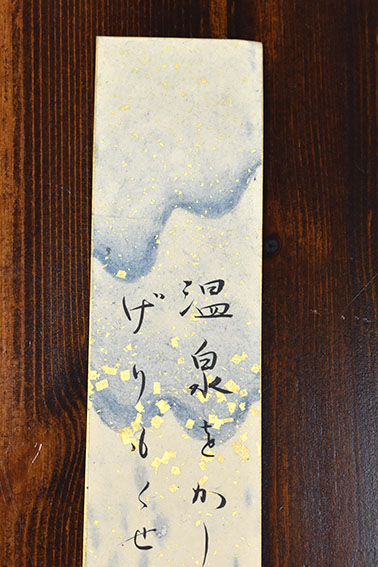 温泉をかし
げりもくせ